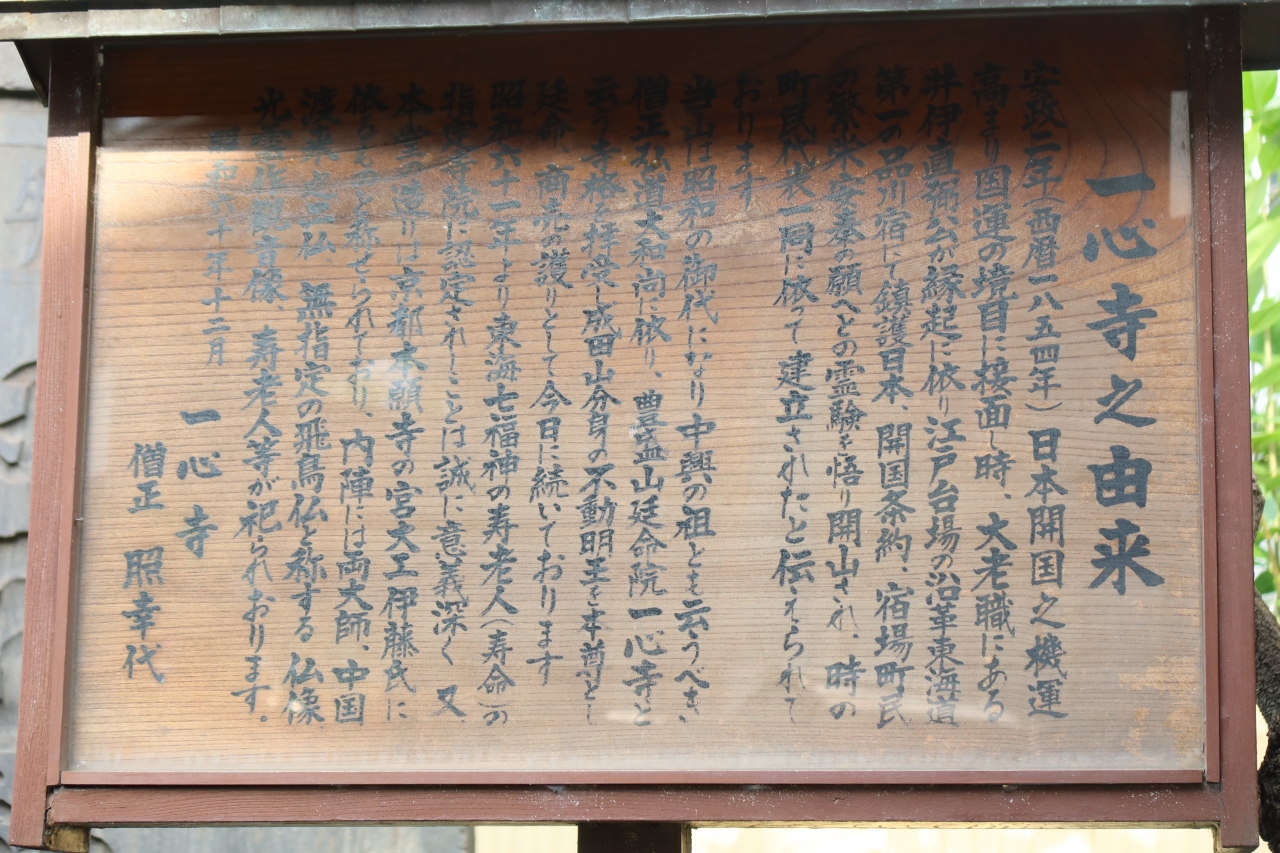 一心寺之由来
安政二年(西暦一八五四年)日本開国之機運
高まり国運の境目に接面し時、大老職にある
井伊直弼公が縁起に依り江戸台場の沿革東海道
第一の品川宿にて鎮護日本、開国条約、宿場町民
の繁栄安泰の願へとの霊験を悟り開山され、時の
町民代表一同に依って建立されたと伝えられて
おります
当山は昭和の御代になり中興の祖とも云うべき、
僧正弘道大和尚に依り、豊盛山延命院一心寺と
云う寺標を拝受し成田山分身の不動明王を本尊とし
延命、商売の護りとして今日に続いております
昭和六十一年より東海七福神の寿老人(寿命)の
指定寺院に認定されしことは誠に意義深く 又、
本堂の造りは京都本願寺の宮大工伊藤氏に
依るものと称せられており、内陣には両大師、中国
渡来 仏 無指定の飛鳥仏と称する仏像、
光雲作観音像、寿老人等が祀られおります。
昭和六十年十二月
一心寺
僧正 照幸代